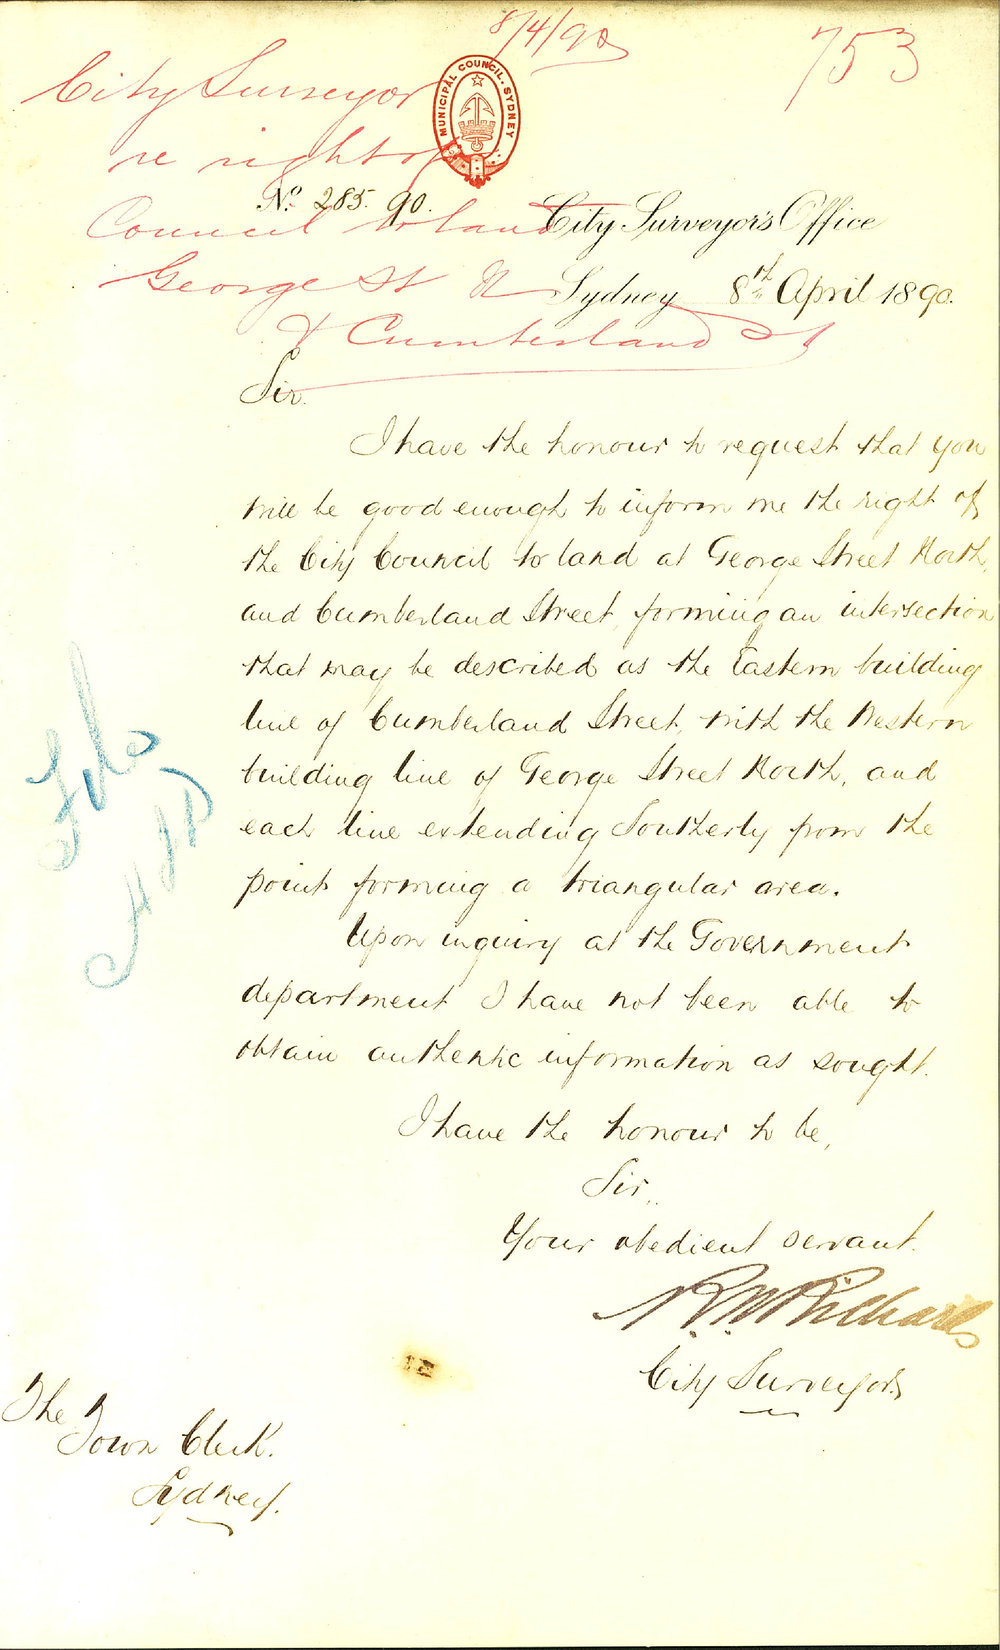 8/4/90
753
City Surveyor
MUNICIPAL COUNCIL. SYDNEY
re right of
No. 285. 90.
Council to land
City Surveyor's Office
George St N
Sydney 8th April 1890.
& Cumberland St
Sir.
I have the honour to request that you
will be good enough to inform me the right of
the City Council to land at George Street North,
and Cumberland Street, forming an intersection
that may be described as the Eastern building
line of Cumberland Street, with the Western
building line of George Street North, and
each line extending Southerly from the
point forming a triangular area.
Upon inquiry at the Government
department I have not been able to
obtain authentic information as sought.
I have the honour to be,
Sir,
Your obedient servant.
R. W. Richards
City Surveyor.
The
Town Clerk.
Sydney.
File